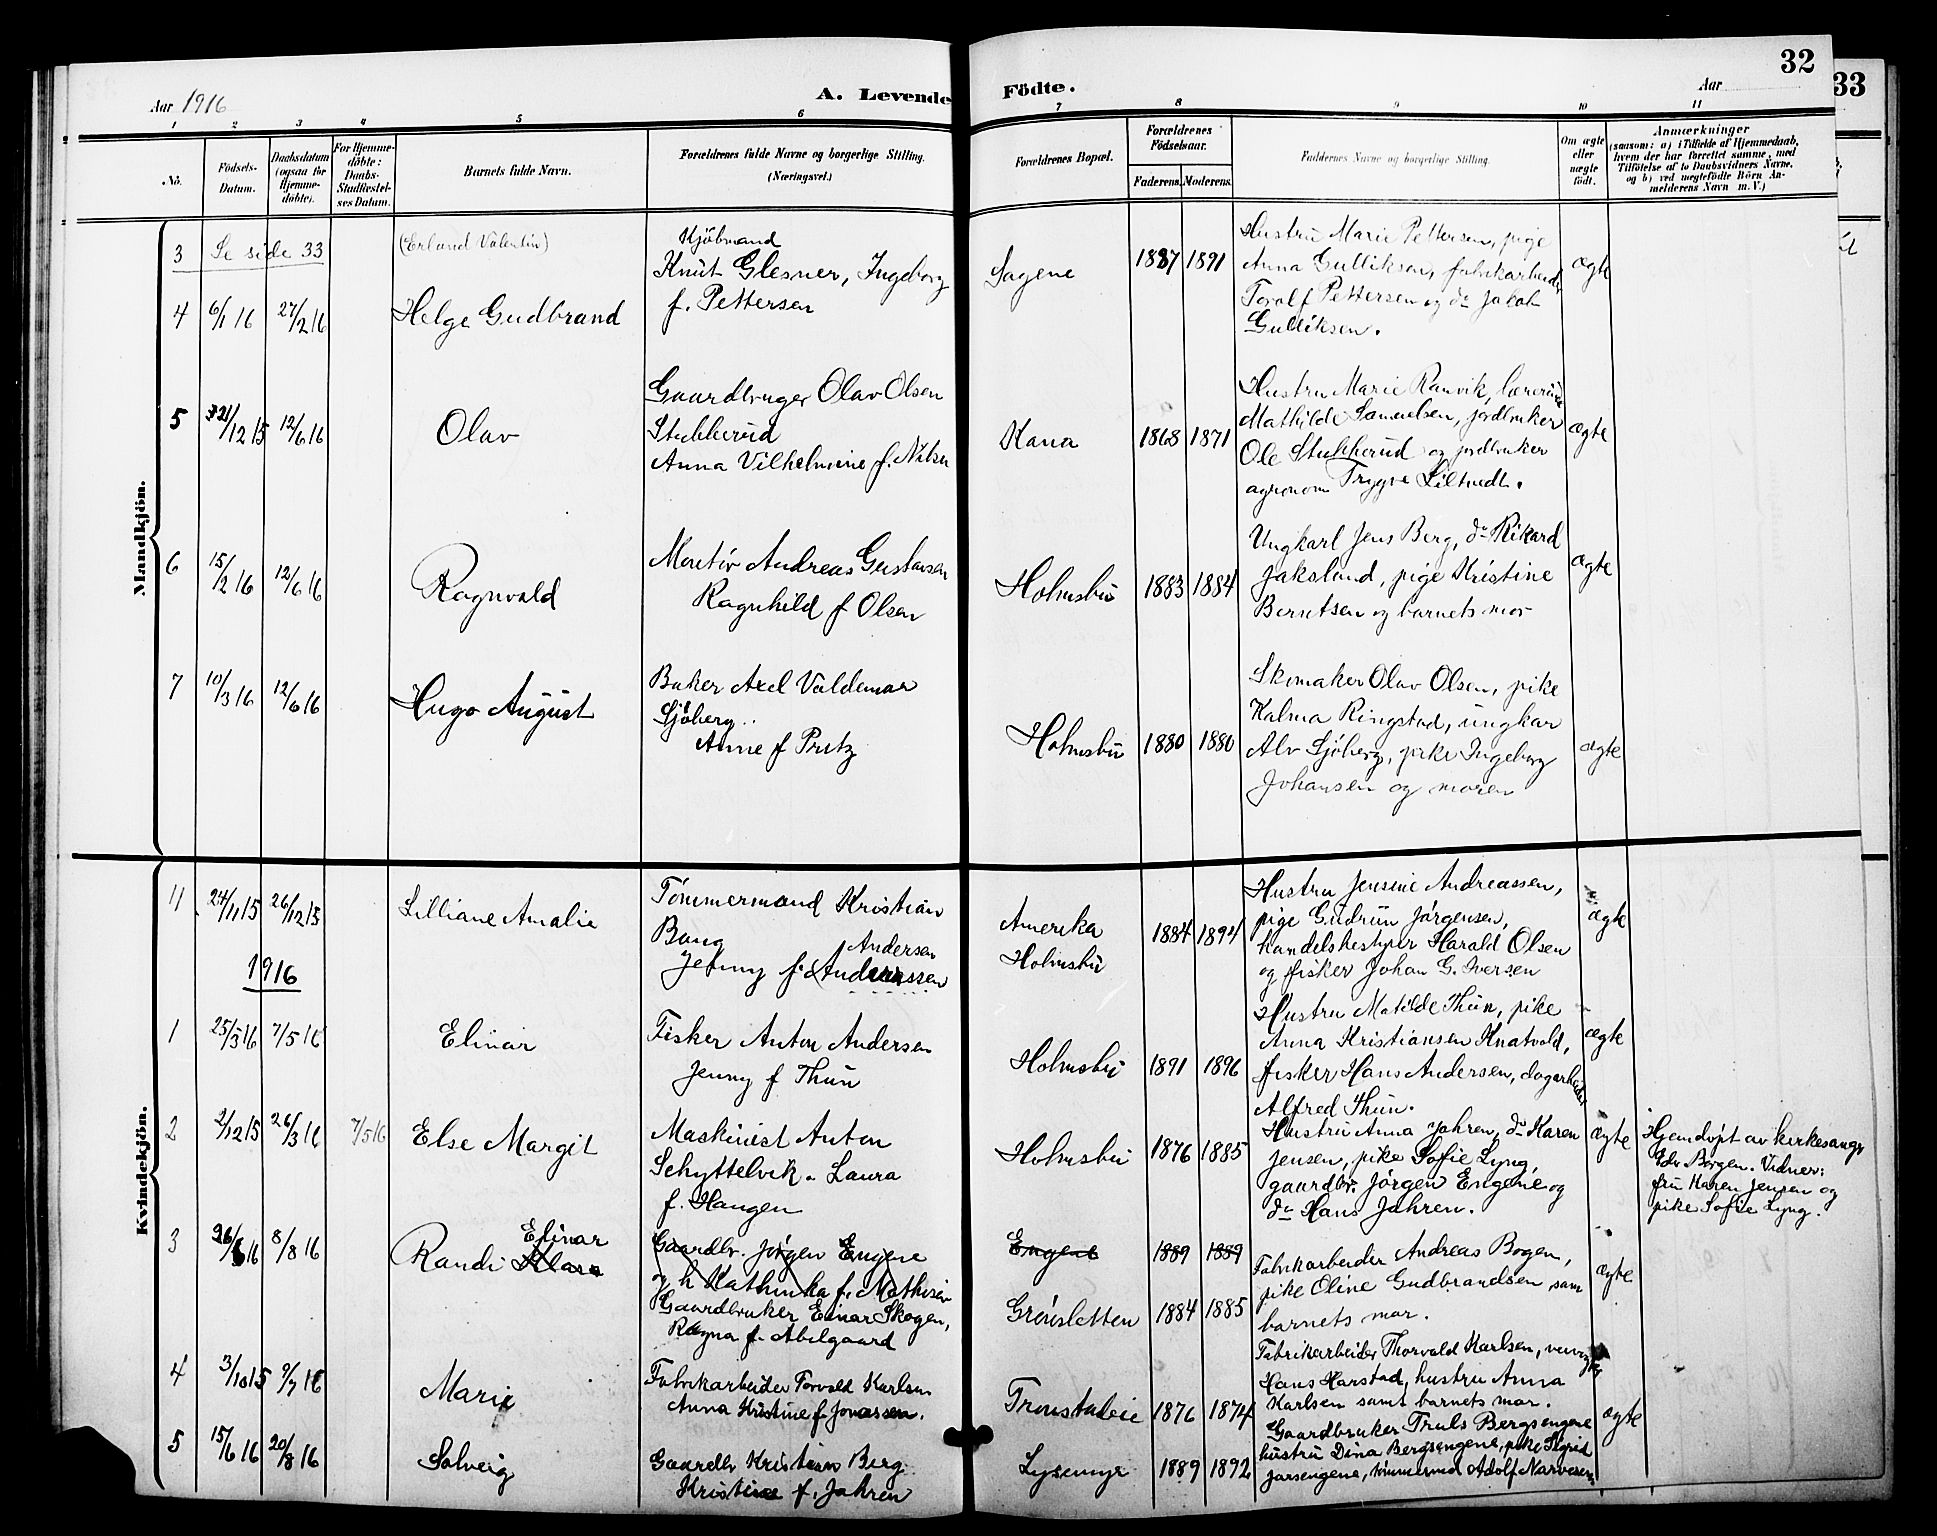 32
33
Aar 1916
A. Levende Födte.
Aar
1 2 3 4 5 6 7 8 9 10 11
No.
Födsels-Datum.
Daabsdatum (ogsaa for Hjemmedöbte).
For Hjemmedöbte: Daabs-Stadfæstelses Datum.
Barnets fulde Navn.
Forældrenes fulde Navne og borgerlige Stilling.
(Næringsvei.)
Forældrenes Bopæl.
Forældrenes Födselsaar.
Faderens. Moderens.
Faddernes Navne og borgerlige Stilling.
Om ægte eller uægte födt.
Anmærkninger
(saasom: a) i Tilfælde af Hjemmedaab,
hvem der har forrettet samme, med
Tilföielse af to Daabsvidners Navne.
og b) ved uegtefödte Börn Anmelderens Navn m. V.)
Mandkjön.
3 Se side 33 (Erland Valentin)
4 6/1 16 27/2 16 Helge Gudbrand
Kjöbmand
Knut Glesner, Ingeborg
f. Pettersen
Sagene 1887 1891
Hustru Marie Pettersen, pige
Anna Gulliksen, fabrikarbeider
Toralf Pettersen og do Jakob
Gulliksen.
ægte
5 21/12 15 12/6 16 Olav
Gaardbruger Olav Olsen
Stubberud
Anna Vilhelmine f. Nilsen
Kana 1868 1871
Hustru Marie Ramvik, lærerinde
Mathilde Samuelsen, jordbruker
Ole Stubberud og jordbruker
agronom Trygve Liltvedt.
ægte
6 15/2 16 12/6 16 Ragnvald
Montör Andreas Gustavsen
Ragnhild f Olsen
Holmsbu 1883 1884
Ungkarl Jens Berg, do Rikard
Jakslund, pige Kristine
Berntsen og barnets mor
ægte
7 10/3 16 12/6 16 Hugo August
Baker Axel Valdemar
Sjöberg
Anne f Prytz
Holmsbu 1880 1880
Skomaker Olav Olsen, pike
Kalma Ringstad, ungkar
Alv Sjöberg, pike Ingeborg
Johansen og moren
ægte
Kvindekjön.
11 24/11 15 26/12 15 Lilliane Amalie
Tömmermand Kristian
Bang
Jenny f. Andersen
Andreassen
Amerika
Holmsbu
1884 1894
Hustru Jensine Andreassen,
pige Gudrun Jörgensen,
handelsbestyrer Harald Olsen
og fisker Johan G. Iversen
ægte
1916
1 25/3 16 7/5 16 Elinar
Fisker Anton Andersen
Jenny f Thun
Holmsbu 1891 1896
Hustru Matilde Thun, pike
Anna Kristiansen Knatvold,
fisker Hans Andersen, dagarbeider
Alfred Thun.
ægte
2 2/12 15 26/3 16 7/5 16 Else Margit
Maskinist Anton
Schyttelvik. Laura
f. Haugen
Holmsbu 1876 1885
Hustru Anna Jahren, do Karen
Jensen, pike Sofie Lyng,
gaardbr. Jörgen Engene og
do Hans Jahren.
ægte
Hjemdöpt av kirkesanger
Edv Bergen. Vidner:
fru Karen Jensen og
pike Sofie Lyng.
3 26/6 16 8/8 16 Randi Klara Elinar
Gaardbr. Jörgen Engene
og h Kathinka f. Mathisen
Gaardbruker Einar Skogen,
Ragna f. Abelgaard
Engene 1889 1889
Grönsletten 1884 1885
Fabrikarbeider Andreas Bogen,
pike Oline Gudbrandsen samt
barnets mor.
ægte
4 3/10 15 9/7 16 Marie
Fabrikarbeider Torvald Karlsen
Anna Kristine f. Jonassen.
Tronstadleie 1876 1874
Fabrikarbeider Thorvald Karlsen,
Hans Harstad, hustru Anna
Karlsen samt barnets mor.
ægte
5 15/6 16 20/8 16 Solveig
Gaardbr Kristian Berg
Kristine f. Jahren
Lysemyr 1889 1892
Gaardbruker Truls Bergsengene
hustru Dina Bergsengene, pike Sigrid
Jarsengene, tömmermd Adolf Narvesen